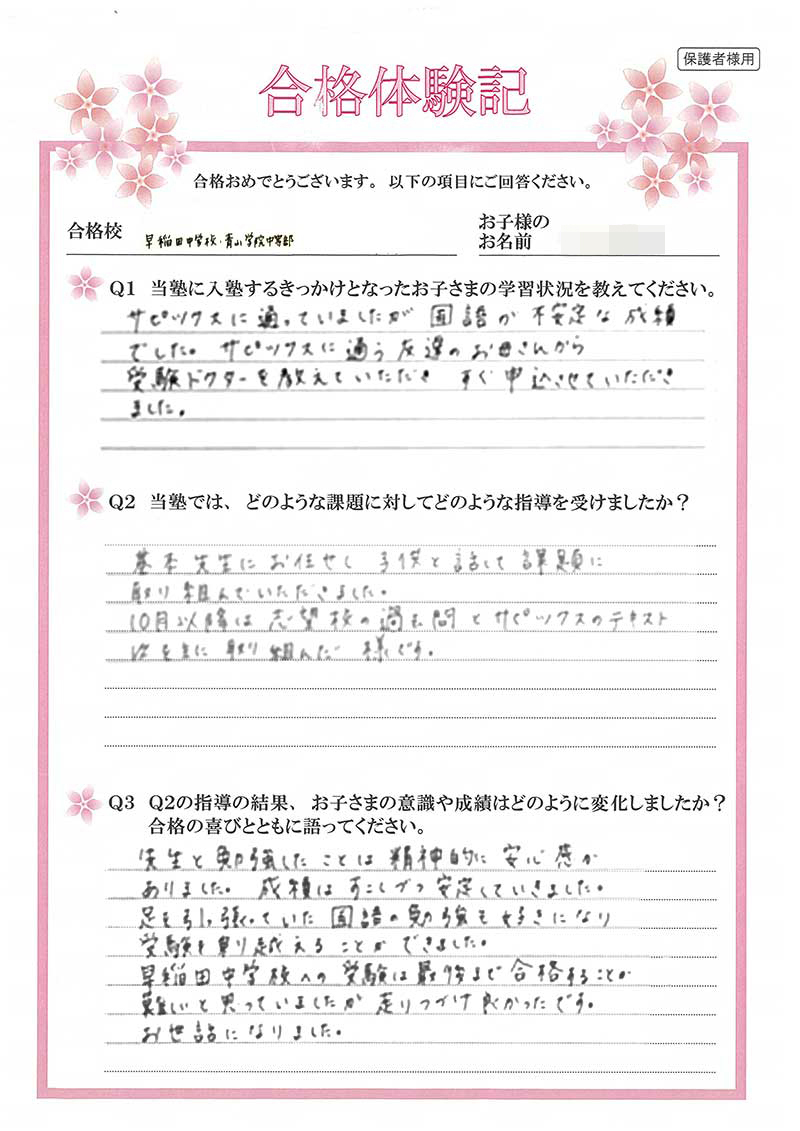 保護者様用
合格体験記
合格おめでとうございます。以下の項目にご回答ください。
合格校 早稲田中学校・青山学院中等部
お子様の
お名前
Q1 当塾に入塾するきっかけとなったお子さまの学習状況を教えてください。
サピックスに通っていましたが 国語が 不安定な 成績
でした。サピックスに通う友達のお母さんから
受験ドクターを教えていただき すぐ申込させていただき
ました。
Q2 当塾では、どのような課題に対してどのような指導を受けましたか?
基本先生にお任せし 子供と話して課題に
取り組んでいただきました。
10月以降は志望校の過去問とサピックスのテキスト
に取り組んだ様です。
Q3 Q2の指導の結果、お子さまの意識や成績はどのように変化しましたか?
合格の喜びとともに語ってください。
先生と勉強したことは精神的に安心感が
ありました。成績はすこしづつ安定していきました。
足を引っ張っていた国語の勉強も好きになり
受験を乗り越えることができました。
早稲田中学校への受験は最後まで合格することが
難しいと思っていましたが走りつづけ良かったです。
お世話になりました。